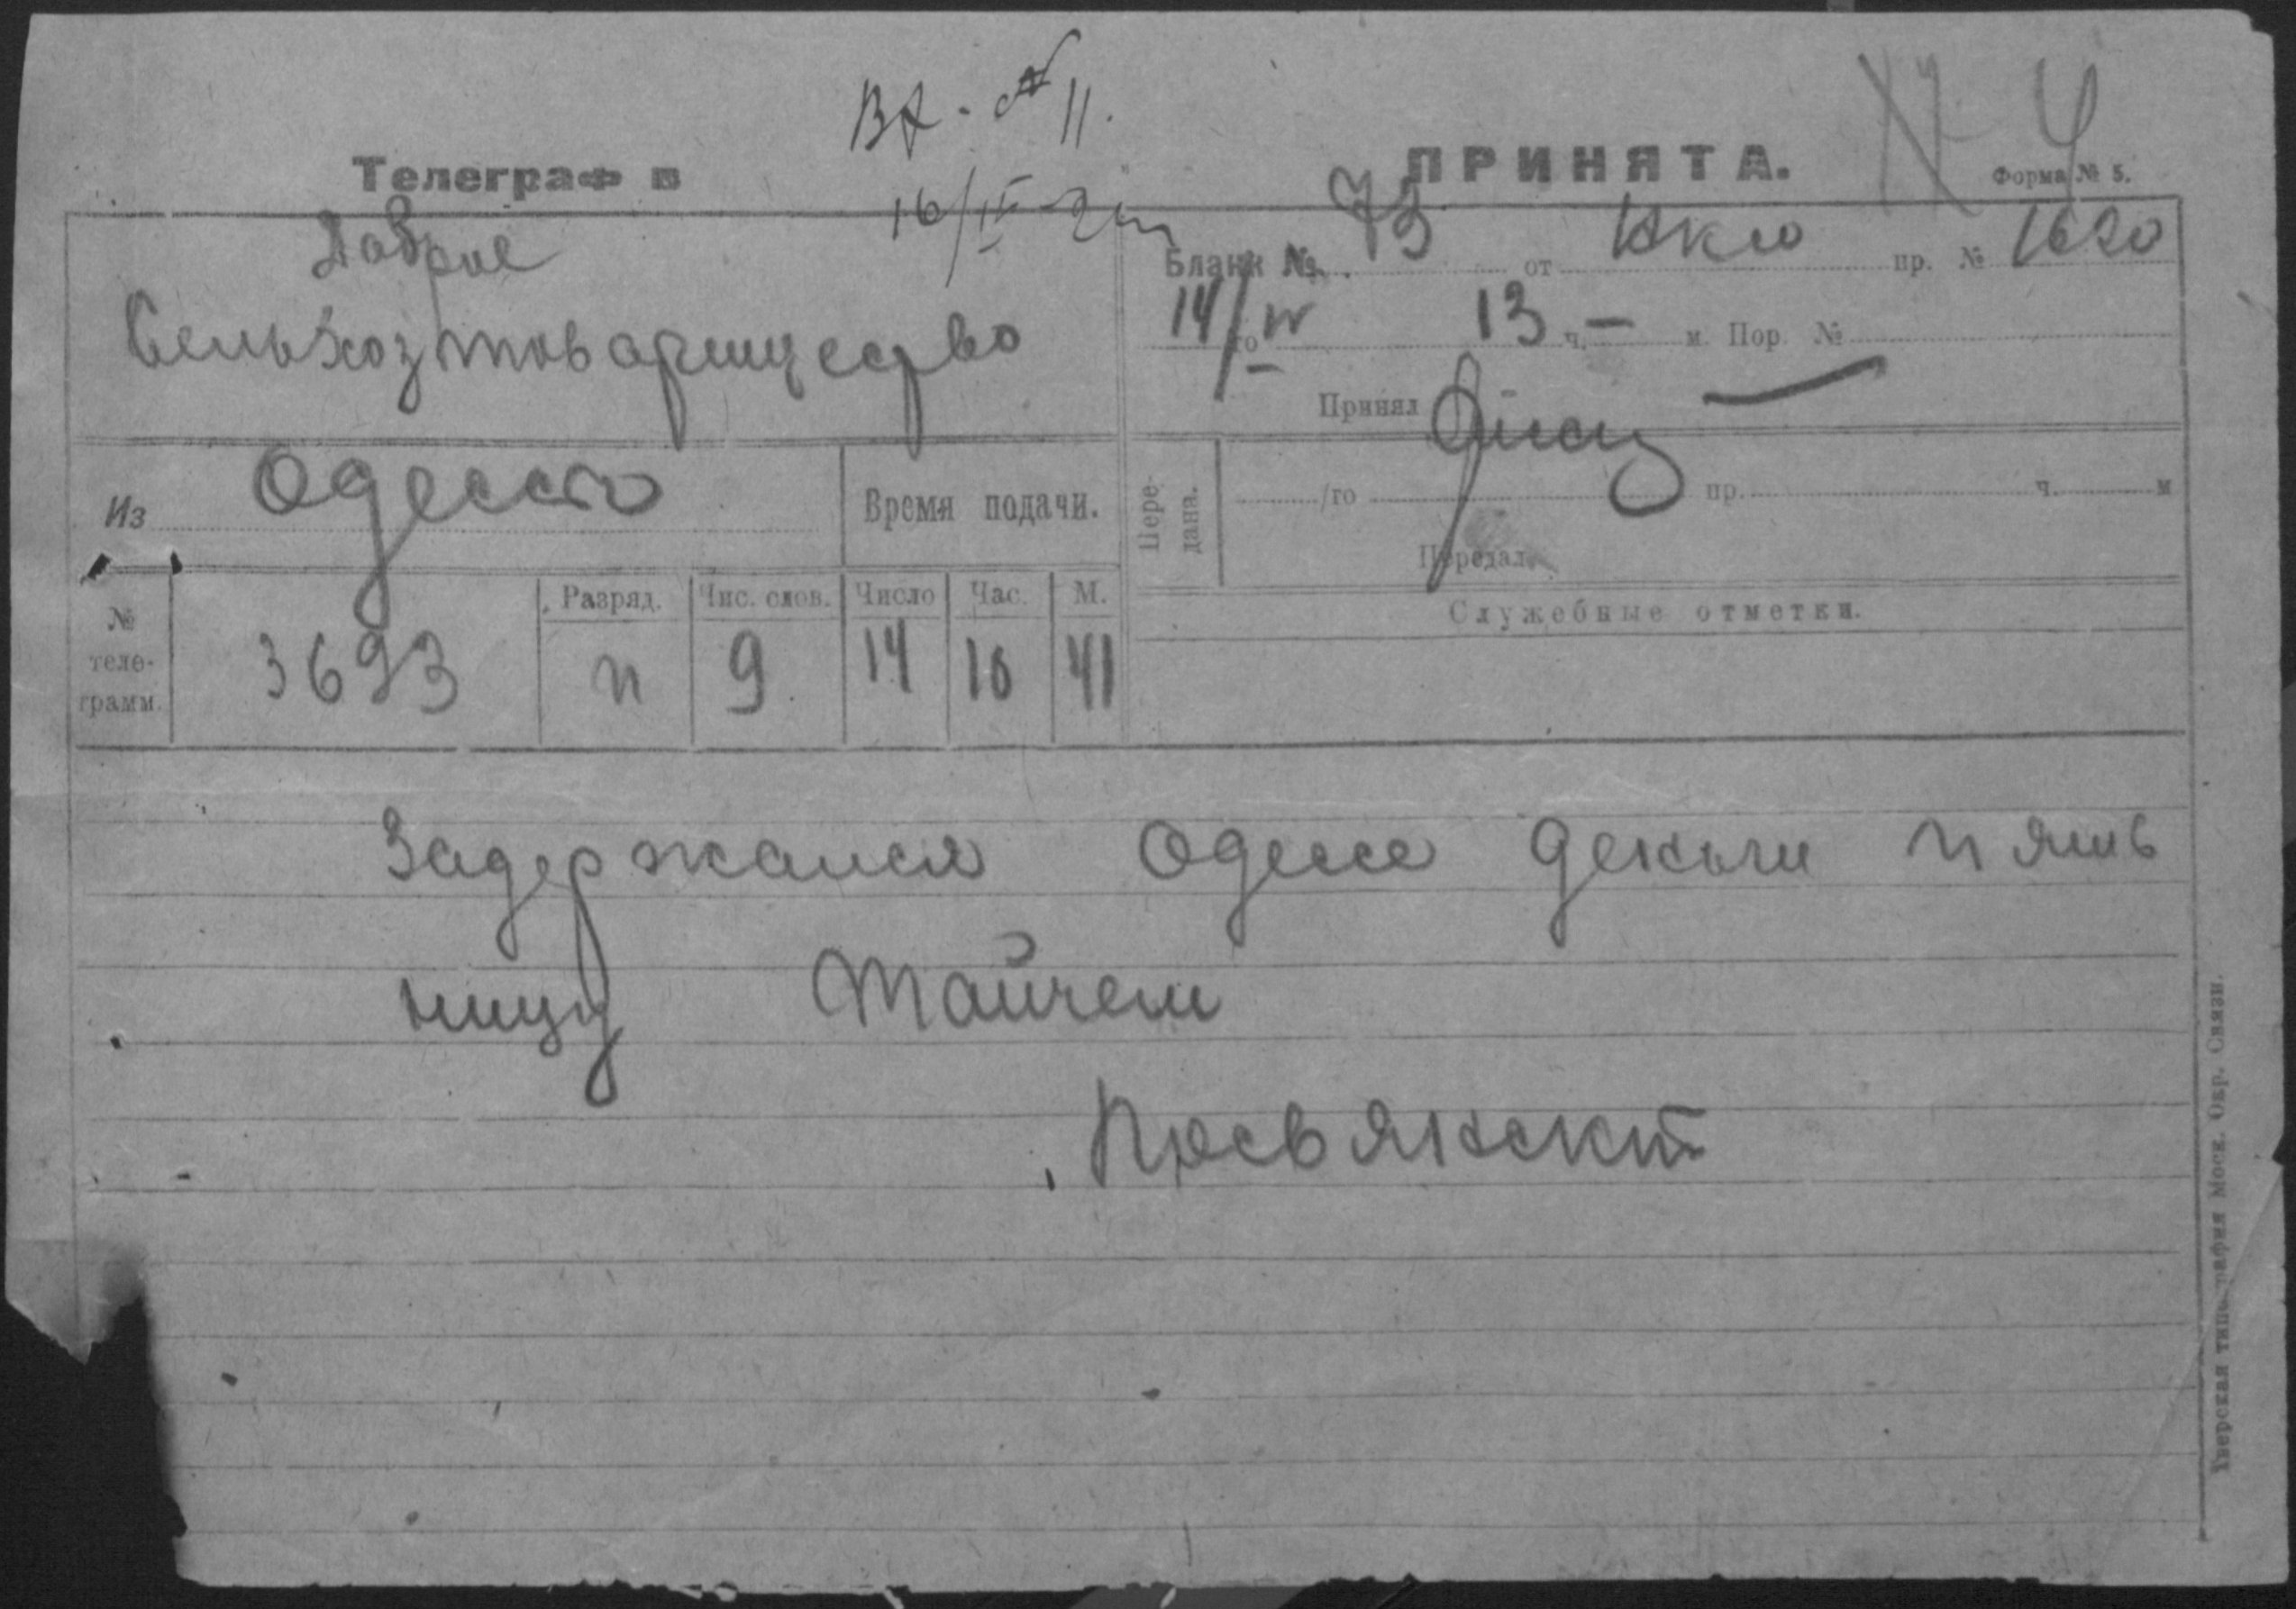 Вх. № 11.
№ 4
Телеграф в
ПРИНЯТА.
Форма № 5.
16/IV
Доброе
Сельхозтоварищество
Бланк №. 73 от Нкю пр. № 1620
14/го IV 13 ч. — м. Пор. №
Принял
Из Одессы
Время подачи.
Пере-
дана.
/го пр. ч. м
Передал
№
теле-
грамм.
Разряд. Чис. слов. Число Час. М.
3693 п 9 14 10 41
Служебные отметки.
Задержался Одессе деньги пять
ницу
Тверская типография Моск. Окр. Связи.